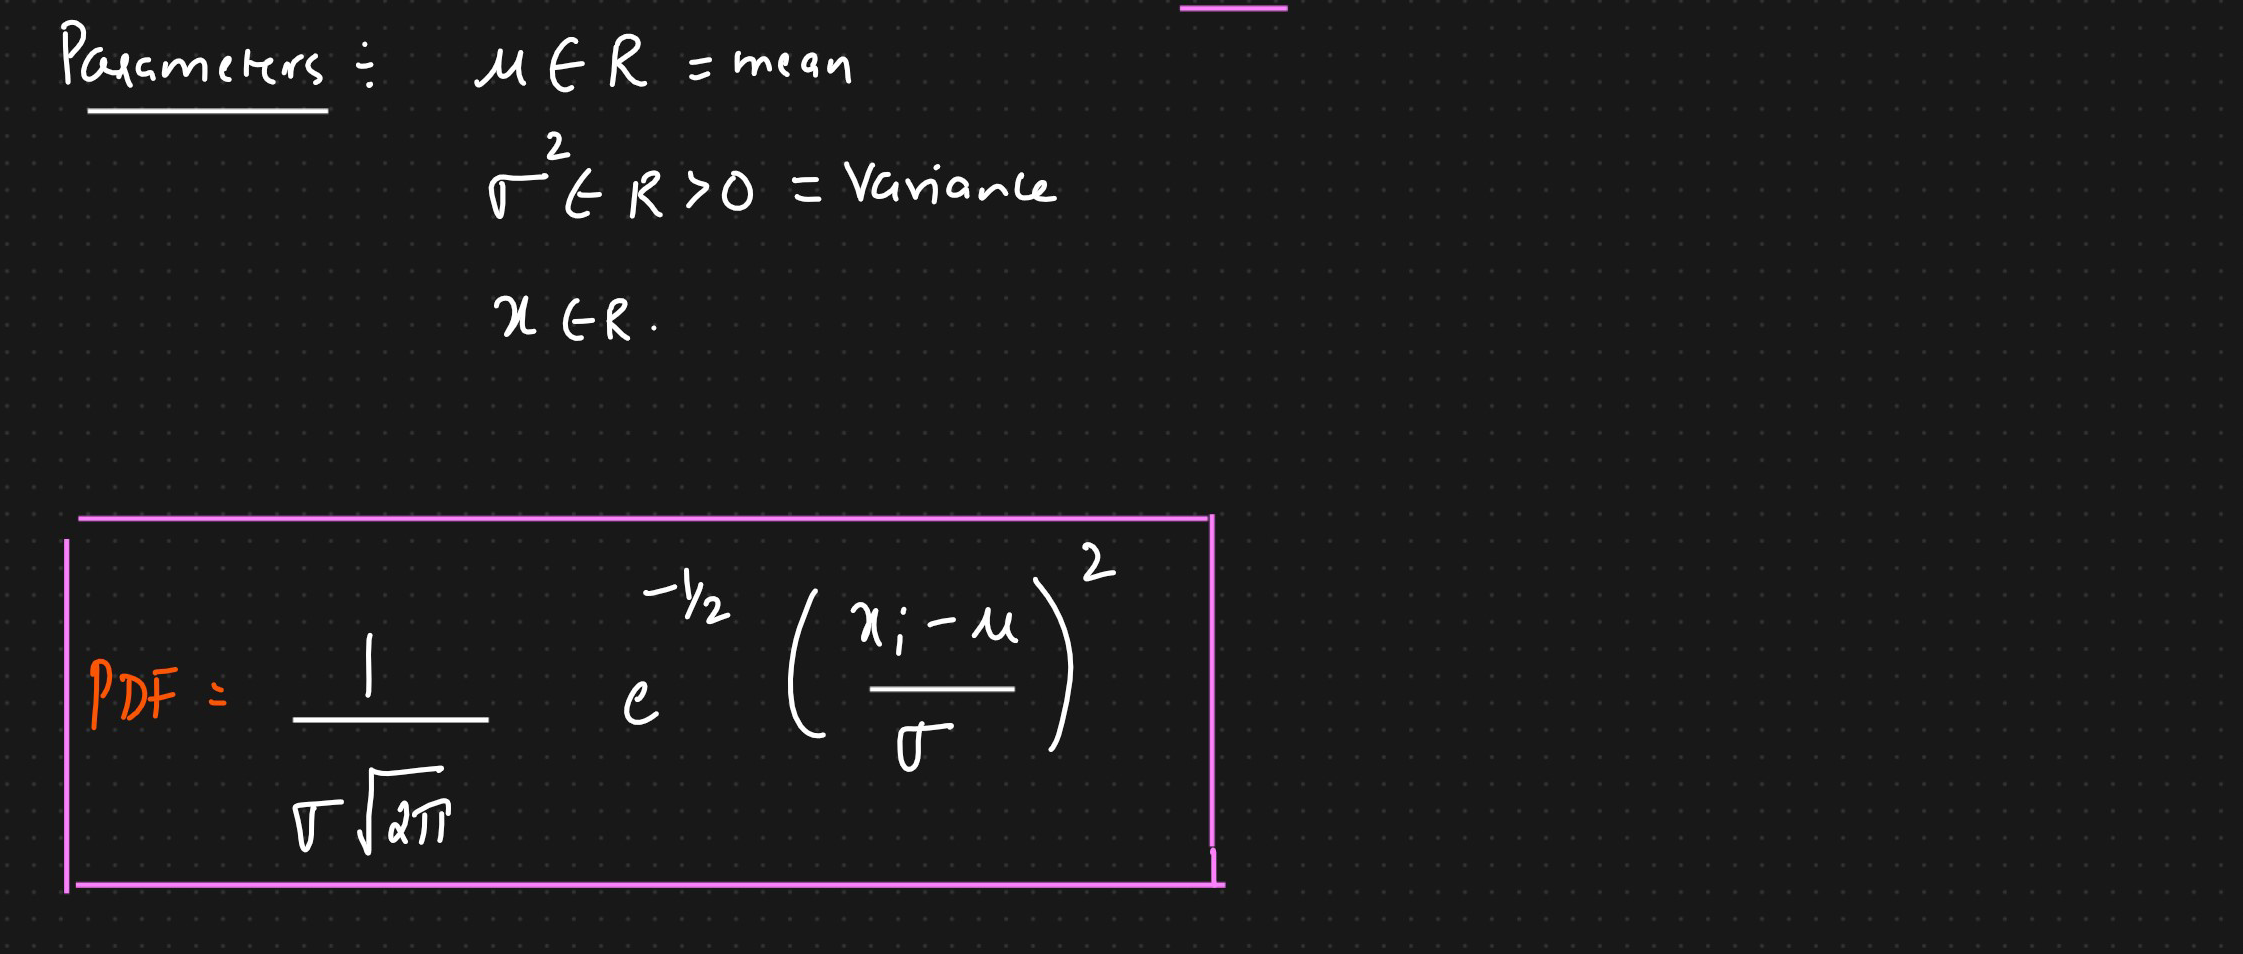 Parameters : μ ∈ R = mean
σ² ∈ R > 0 = Variance
x ∈ R.
PDF = 1/(σ√2π) e^(-1/2) ((xᵢ - μ)/σ)²